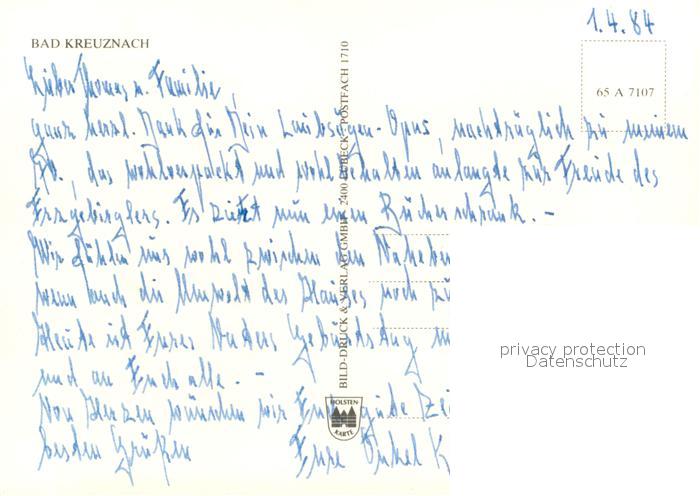 1.4.84
BAD KREUZNACH
65 A 7107
Lieber Thomas u. Familie,
ganz herzl. Dank für Dein Laubsägen-Opus, nachträglich zu meinem
das wohlverpackt und wohlbehalten anlangte zur Freude des
Erzgebirglers. Es zieht nun einen Bücherschrank. -
Wir fühlen uns wohl zwischen den
wenn auch die Umwelt des Hauses noch
Heute ist Eures Vaters Geburtstag
und an Euch alle. -
Von Herzen wünschen wir Euch gute
besten Grüßen Eure Onkel K
BILD-DRUCK & VERLAG GMBH · 2400 LÜBECK · POSTFACH 1710
HOLSTEN
KARTE
privacy protection
Datenschutz